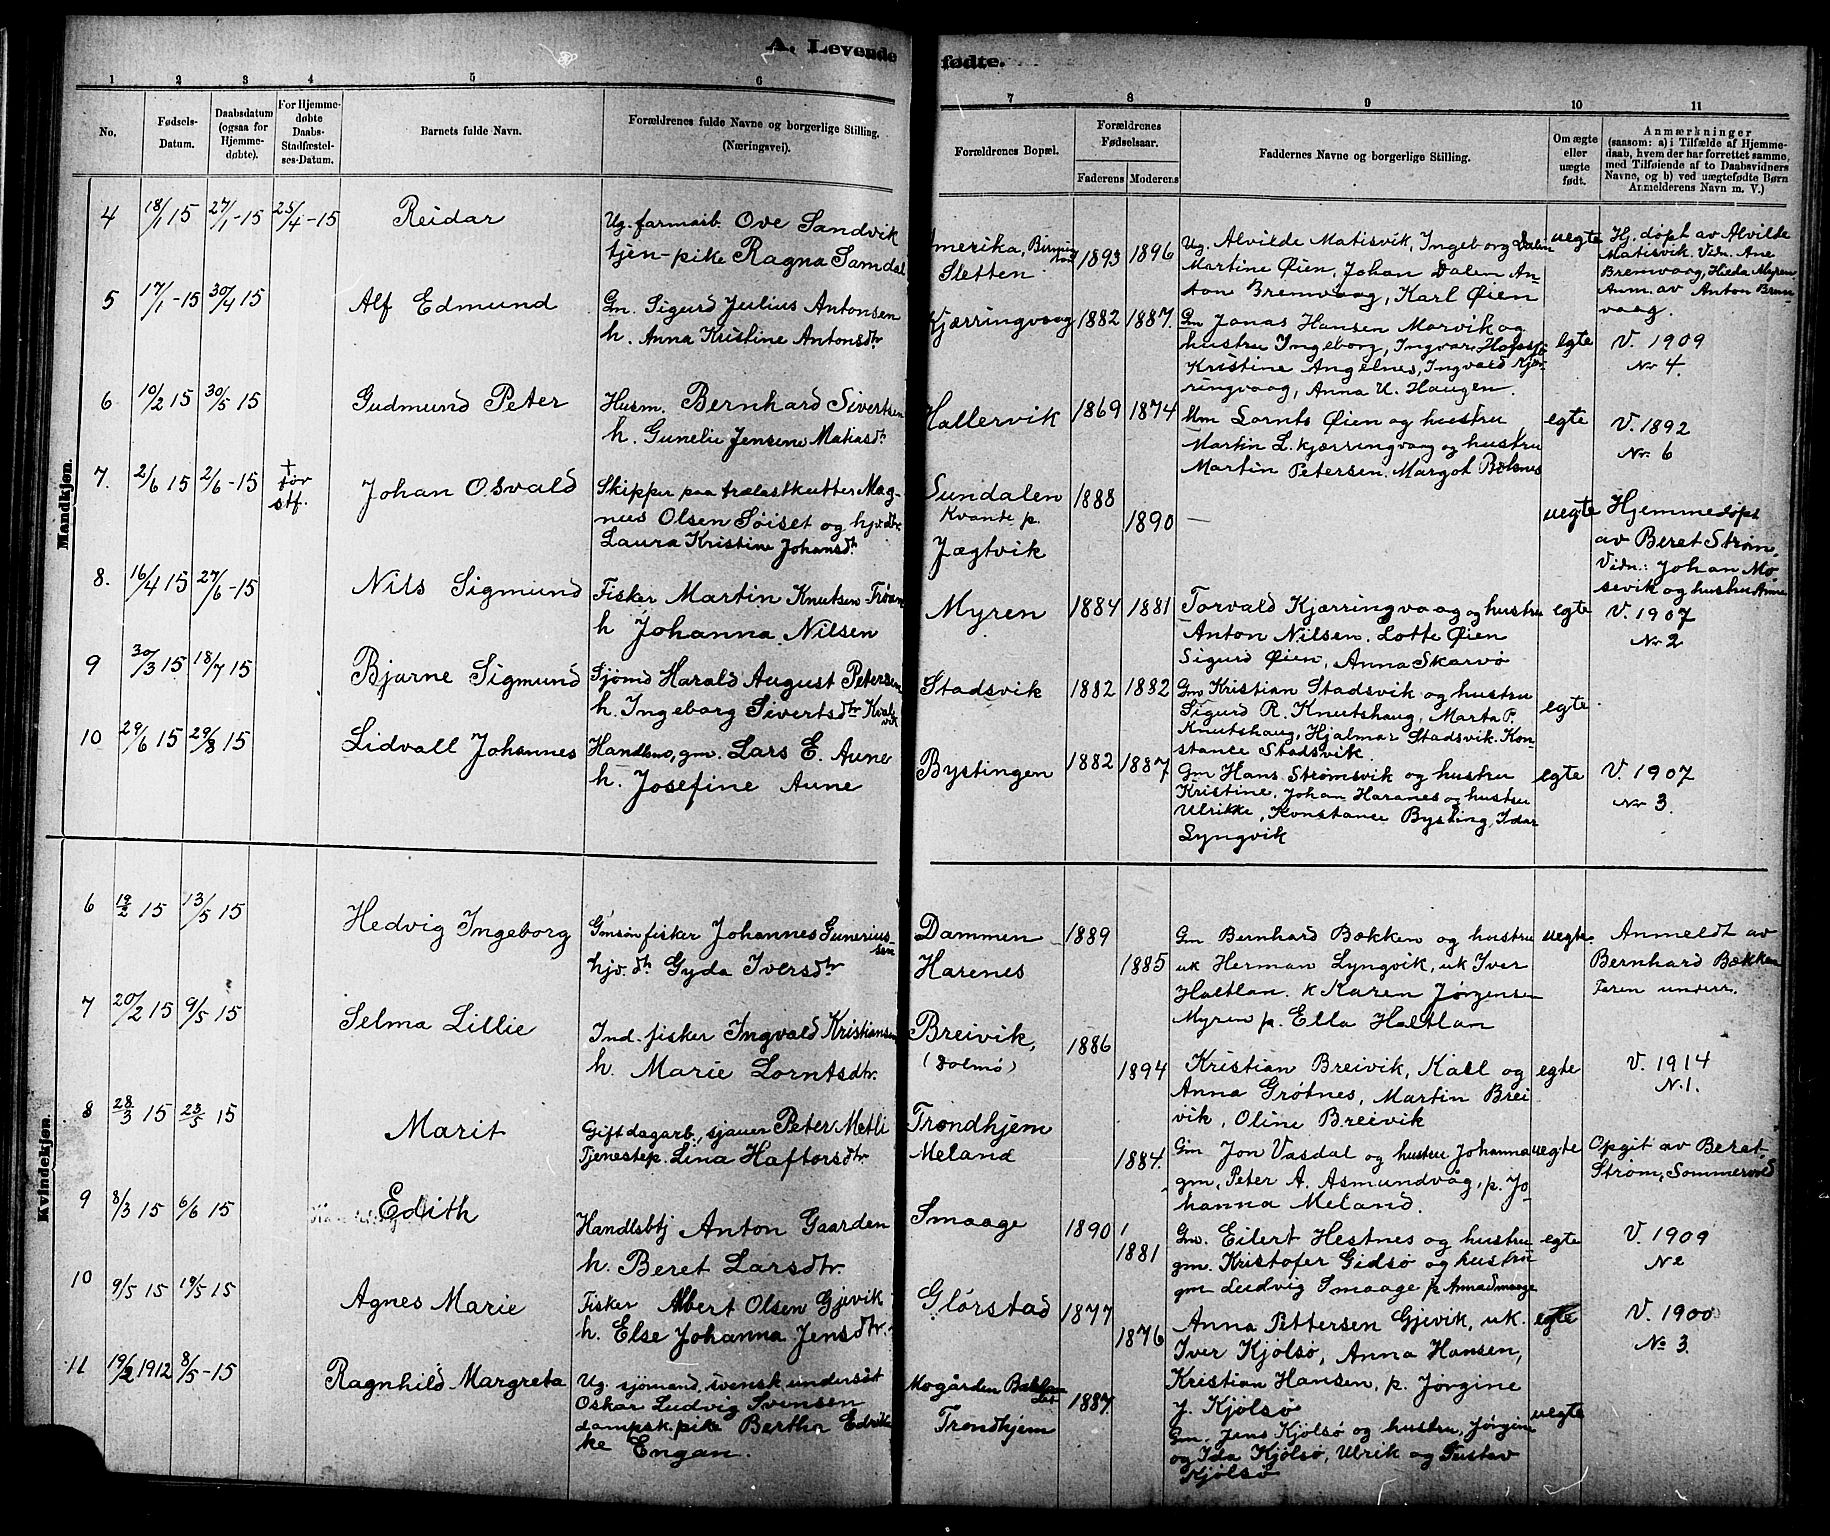 A. Levende fødte.
1 2 3 4 5 6 7 8 9 10 11
No.
Fødsels-Datum.
Daabsdatum (ogsaa for Hjemme-døbte).
For Hjemme-døbte Daabs-Stadfæstel-ses-Datum.
Barnets fulde Navn.
Forældrenes fulde Navne og borgerlige Stilling.
(Næringsvei).
Forældrenes Bopæl.
Forældrenes Fødselsaar.
Faderens Moderens
Faddernes Navne og borgerlige Stilling.
Om ægte eller uægte født.
Anmærkninger
(saasom: a) i Tilfælde af Hjemme-
daab, hvem der har forrettet samme,
med Tilføiende af to Daabsvidners
Navne, og b) ved uægtefødte Børn
Anmelderens Navn m. V.)
Mandkjøn.
4 18/1 15 27/1-15 25/4-15 Reidar
Ug. farmarb. Ove Sandvik
tjen-pike Ragna Samdal
Amerika,
Sletten
1893 1896
Ug. Alvilde Matisvik, Ingeborg Dalen
Martine Øien, Johan Dalen An-
ton Bremvaag, Karl Øien
uegte
Hj. døpt av Alvilde
Matisvik. Vidn. Ane
Bremvaag, Hilda Myren
Anm. av Anton Brem-
vaag.
5 17/1-15 30/4 15 Alf Edmund
Gm. Sigurd Julius Antonsen
h. Anna Kristine Antonsdtr
Kjærringvaag
1882 1887.
Gm Jonas Hansen Marvik og
hustru Ingeborg, Ingvar Hopsjø
Kristine Angelnes, Ingvald Kjær-
ringvaag, Anna U. Haugen.
egte
V. 1909
Nr 4.
6 10/2 15 30/5 15 Gudmund Peter
Husm. Bernhard Sivertsen
h. Gunelie Jensine Matiasdtr
Hallervik
1869 1874
Gm Lornts Øien og hustru
Martin L. Kjærringvaag og hustru
Martin Petersen. Margot Bøksnes
egte
V. 1892
Nr. 6
7. 2/6 15 2/6-15 † før stf. Johan Osvald
Skipper paa trælastkutter Mag-
nus Olsen Søiset og hj.v.dtr
Laura Kristine Johansdtr
Sundalen
Kvande p.
Jægtvik
1888
1890
—
uegte
Hjemmedøpt
av Beret Strøm,
Vidn.: Johan Mo-
sevik og hustru Anne
8. 16/4 15 27/6-15 Nils Sigmund
Fisker Martin Knutsen-Trøan
h Johanna Nilsen
Myren
1884 1881
Torvald Kjærringvaag og hustru
Anton Nilsen, Lotte Øien
Sigurd Øien, Anna Skarvø
egte
V. 1907
Nr 2
9 30/3 15 18/7 15 Bjarne Sigmund
Sjømd Harald August Petersen
h. Ingeborg Sivertsdtr Kvalvik
Stadsvik
1882 1882
Gm Kristian Stadsvik og hustru
Sigurd R. Knutshaug, Marta P.
Knutshaug, Hjalmar Stadsvik. Kon-
stance Stadsvik
egte
10 29/6 15 29/8 15 Lidvall Johannes
Handlsm, gm. Lars E. Aune
h. Josefine Aune
Bystingen
1882 1887
Gm Hans Strømsvik og hustru
Kristine, Johan Haranes og hustru
Ulrikke, Konstance Bysting, Idar
Lyngvik
egte
V. 1907
Nr 3.
Kvindekjøn.
6 19/2 15 13/5 15 Hedvig Ingeborg
Gmsøn fisker Johannes Gunerius-
sen
hjv. dtr Gyda Iversdtr
Dammen
Harenes
1889
1885
Gm Bernhard Bækken og hustru
uk Herman Lyngvik, uk Iver
Haltlan. k Karen Jørgensen
Myren p. Ella Haltlan
uegte.
Anmeldt av
Bernhard Bækken
Faren underr.
7 20/2 15 9/5 15 Selma Lillie
Ind. fisker Ingvald Kristiansen
h. Marie Lorntsdtr.
Breivik,
(Dolmø)
1886
1894
Kristian Breivik, Kall og
Anna Grøtnes, Martin Brei
vik, Oline Breivik
egte
V. 1914
N. 1.
8 28/3 15 23/5 15 Marit
Gift dagarb., sjauer Peter Metli
Tjenestep. Lina Haftorsdtr.
Trondhjem
Meland
1884.
Gm Jon Vasdal og hustru Johanna
gm, Peter A. Asmundvåg, p. Jo
hanna Meland.
uegte
Opgit av Beret
Strøm, Sommervold
9 8/3 15 6/6 15 Edith
Handlsbtj Anton Gaarden
h. Beret Larsdtr.
Smaage
1890
1881
Gm. Eilert Hestnes og hustru
gm. Kristofer Gidsø og hustru
gm Ludvig Smaage p. Anna Smaage
egte
V. 1909
Ne
10 9/5 15 19/5 15 Agnes Marie
Fisker Albert Olsen Gjevik
h. Else Johanna Jensdtr.
Glørstad
1877
1876
Anna Pettersen Gjevik, uk.
Iver Kjølsø, Anna Hansen,
Kristian Hansen, p. Jørgine
J. Kjølsø
egte
V. 1900
No 3.
11 19/2 1912 8/5-15 Ragnhild Margreta
Ug. sjømand, svensk undersåt
Oskar Ludvig Svensen
dampsk. pike Bertha Edrik-
ke Engan.
Mogården
Trondhjem
1887.
Gm. Jens Kjølsø og hustru, Jørgine
og Ida Kjølsø, Ulrik og Gustav
Kjølsø
uegte